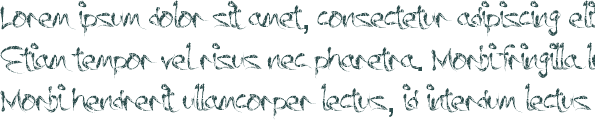 Lorem ipsum dolor sit amet, consectetur adipiscing eli
Etiam tempor vel risus nec pharetra. Morbi fringilla l
Morbi hendrerit ullamcorper lectus, id interdum lectus